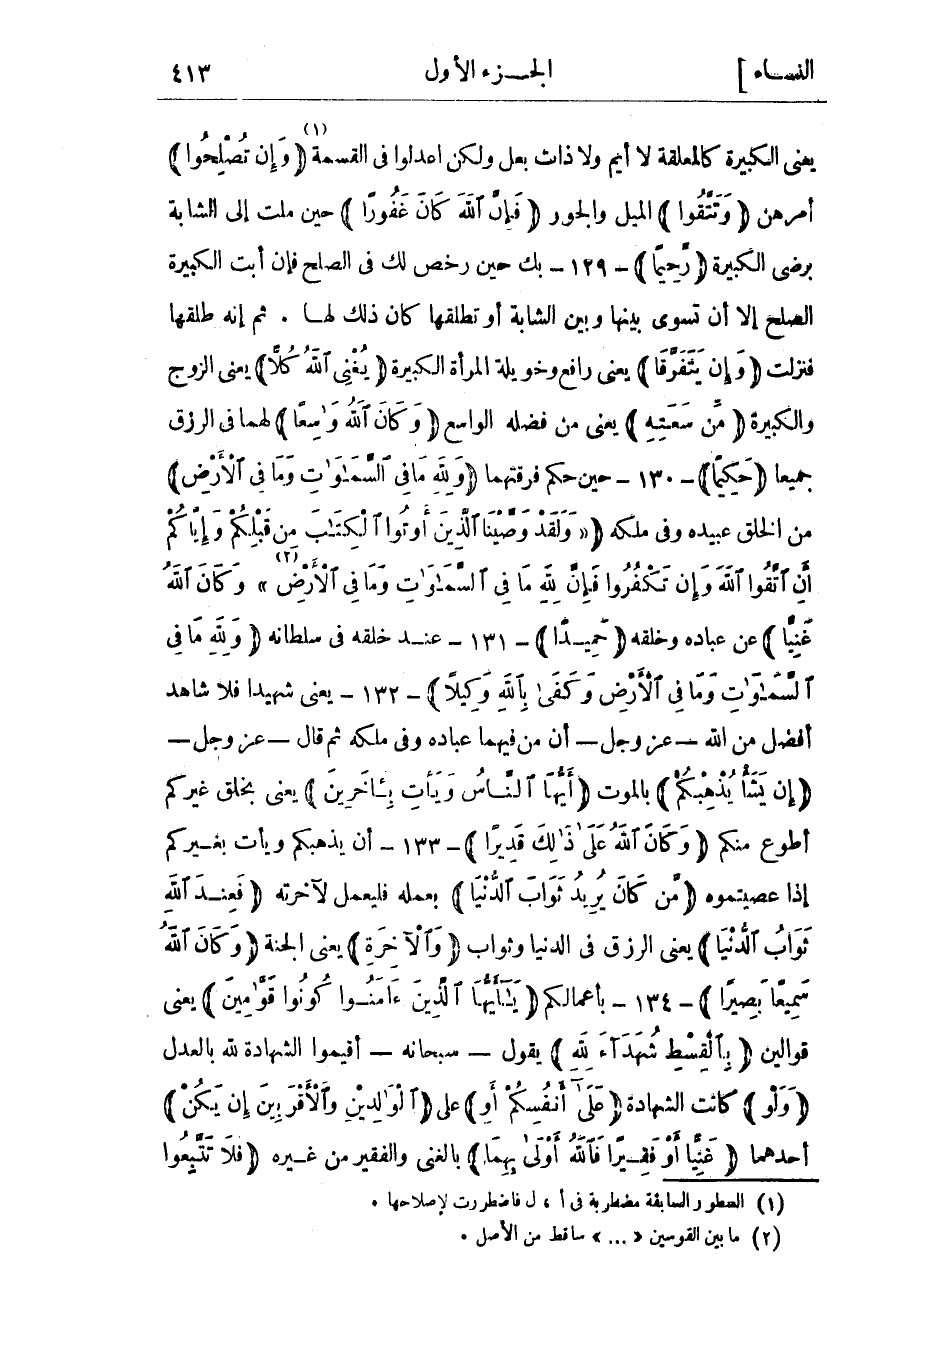 النساء ]
الجزء الأول
٤١٣
يعنى الكبيرة كالمعلقة لا أيم ولا ذات بعل ولكن اعدلوا فى القسمة (١) ﴿ وَإِن تُصْلِحُوا ﴾
أمرهن ﴿ وَتَتَّقُوا ﴾ الميل والجور ﴿ فَإِنَّ ٱللَّهَ كَانَ غَفُورًا ﴾ حين ملت إلى الشابة
برضى الكبيرة ﴿ رَّحِيمًا ﴾ - ١٢٩ - بك حين رخص لك فى الصلح فإن أبت الكبيرة
الصلح إلا أن تسوى بينها وبين الشابة أو تطلقها كان ذلك لهـا . ثم إنه طلقها
فنزلت ﴿ وَإِن يَتَفَرَّقَا ﴾ يعنى رافع وخويلة المرأة الكبيرة ﴿ يُغْنِ ٱللَّهُ كُلًّا ﴾ يعنى الزوج
والكبيرة ﴿ مِّن سَعَتِهِ ﴾ يعنى من فضله الواسع ﴿ وَكَانَ ٱللَّهُ وَٰسِعًا ﴾ لهما فى الرزق
جميعا ﴿ حَكِيمًا ﴾ - ١٣٠ - حين حكم فرقتهما ﴿ وَلِلَّهِ مَا فِى ٱلسَّمَٰوَٰتِ وَمَا فِى ٱلْأَرْضِ ﴾
من الخلق عبيده وفى ملكه ﴿ « وَلَقَدْ وَصَّيْنَا ٱلَّذِينَ أُوتُوا ٱلْكِتَٰبَ مِن قَبْلِكُمْ وَإِيَّاكُمْ
أَنِ ٱتَّقُوا ٱللَّهَ وَإِن تَكْفُرُوا فَإِنَّ لِلَّهِ مَا فِى ٱلسَّمَٰوَٰتِ وَمَا فِى ٱلْأَرْضِ » (٢) وَكَانَ ٱللَّهُ
غَنِيًّا ﴾ عن عباده وخلقه ﴿ حَمِيدًا ﴾ - ١٣١ - عنـد خلقه فى سلطانه ﴿ وَلِلَّهِ مَا فِى
ٱلسَّمَٰوَٰتِ وَمَا فِى ٱلْأَرْضِ وَكَفَىٰ بِٱللَّهِ وَكِيلًا ﴾ - ١٣٢ - يعنى شهيدا فلا شاهد
أفضل من الله — عز وجل — أن من فيهما عباده وفى ملكه ثم قال — عز وجل —
﴿ إِن يَشَأْ يُذْهِبْكُمْ ﴾ بالموت ﴿ أَيُّهَا ٱلنَّاسُ وَيَأْتِ بِـَٔاخَرِينَ ﴾ يعنى بخلق غيركم
أطوع منكم ﴿ وَكَانَ ٱللَّهُ عَلَىٰ ذَٰلِكَ قَدِيرًا ﴾ - ١٣٣ - أن يذهبكم ويأت بغـيركم
إذا عصيتموه ﴿ مَّن كَانَ يُرِيدُ ثَوَابَ ٱلدُّنْيَا ﴾ بعمله فليعمل لآخرته ﴿ فَعِنـدَ ٱللَّهِ
ثَوَابُ ٱلدُّنْيَا ﴾ يعنى الرزق فى الدنيا وثواب ﴿ وَٱلْآخِرَةِ ﴾ يعنى الجنة ﴿ وَكَانَ ٱللَّهُ
سَمِيعًا بَصِيرًا ﴾ - ١٣٤ - بأعمالكم ﴿ يَٰٓأَيُّهَا ٱلَّذِينَ ءَامَنُـوا كُونُوا قَوَّٰمِينَ ﴾ يعنى
قوالين ﴿ بِٱلْقِسْطِ شُهَدَآءَ لِلَّهِ ﴾ يقول — سبحانه — أقيموا الشهادة لله بالعدل
﴿ وَلَوْ ﴾ كانت الشهادة ﴿ عَلَىٰٓ أَنفُسِكُمْ أَوِ ﴾ على ﴿ ٱلْوَٰلِدَيْنِ وَٱلْأَقْرَبِينَ إِن يَكُنْ ﴾
أحدهما ﴿ غَنِيًّا أَوْ فَقِيرًا فَٱللَّهُ أَوْلَىٰ بِهِمَا ﴾ بالغنى والفقير من غـيره ﴿ فَلَا تَتَّبِعُوا
(١) السطور السابقة مضطربة فى أ ، ل فاضطررت لإصلاحها .
(٢) ما بين القوسين « ... » ساقط من الأصل .